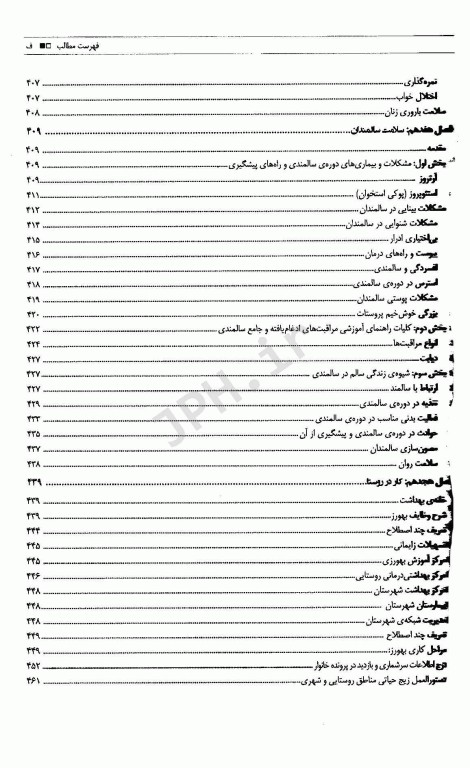 فهرست مطالب □■ ف
نمره‌گذاری ۴۰۷
اختلال خواب ۴۰۷
سلامت باروری زنان ۴۰۸
فصل هفدهم: سلامت سالمندان ۴۰۹
مقدمه ۴۰۹
بخش اول: مشکلات و بیماری‌های دوره‌ی سالمندی و راه‌های پیشگیری ۴۰۹
آرتروز ۴۰۹
استئوپروز (پوکی استخوان) ۴۱۱
مشکلات بینایی در سالمندان ۴۱۲
مشکلات شنوایی در سالمندان ۴۱۴
بی‌اختیاری ادرار ۴۱۵
یبوست و راه‌های درمان ۴۱۶
افسردگی و سالمندی ۴۱۷
استرس در دوره‌ی سالمندی ۴۱۸
مشکلات پوستی سالمندان ۴۱۹
بزرگی خوش‌خیم پروستات ۴۲۰
بخش دوم: کلیات راهنمای آموزشی مراقبت‌های ادغام‌یافته و جامع سالمندی ۴۲۲
انواع مراقبت‌ها ۴۲۴
دیابت ۴۲۷
بخش سوم: شیوه‌ی زندگی سالم در سالمندی ۴۲۷
ارتباط با سالمند ۴۲۷
تغذیه در دوره‌ی سالمندی ۴۲۹
فعالیت بدنی مناسب در دوره‌ی سالمندی ۴۳۳
حوادث در دوره‌ی سالمندی و پیشگیری از آن ۴۳۵
مصون‌سازی سالمندان ۴۳۷
سلامت روان ۴۳۸
فصل هجدهم: کار در روستا ۴۳۹
خانه‌ی بهداشت ۴۳۹
شرح وظایف بهورز ۴۳۹
تعریف چند اصطلاح ۴۴۴
تسهیلات زایمانی ۴۴۵
مرکز آموزش بهورزی ۴۴۵
مرکز بهداشتی‌درمانی روستایی ۴۴۶
مرکز بهداشت شهرستان ۴۴۸
بیمارستان شهرستان ۴۴۸
مدیریت شبکه‌ی شهرستان ۴۴۸
تعریف چند اصطلاح ۴۴۹
مراحل کاری بهورز: ۴۴۹
درج اطلاعات سرشماری و بازدید در پرونده خانوار ۴۵۲
دستورالعمل زیج حیاتی مناطق روستایی و شهری ۴۶۱
JPH.ir